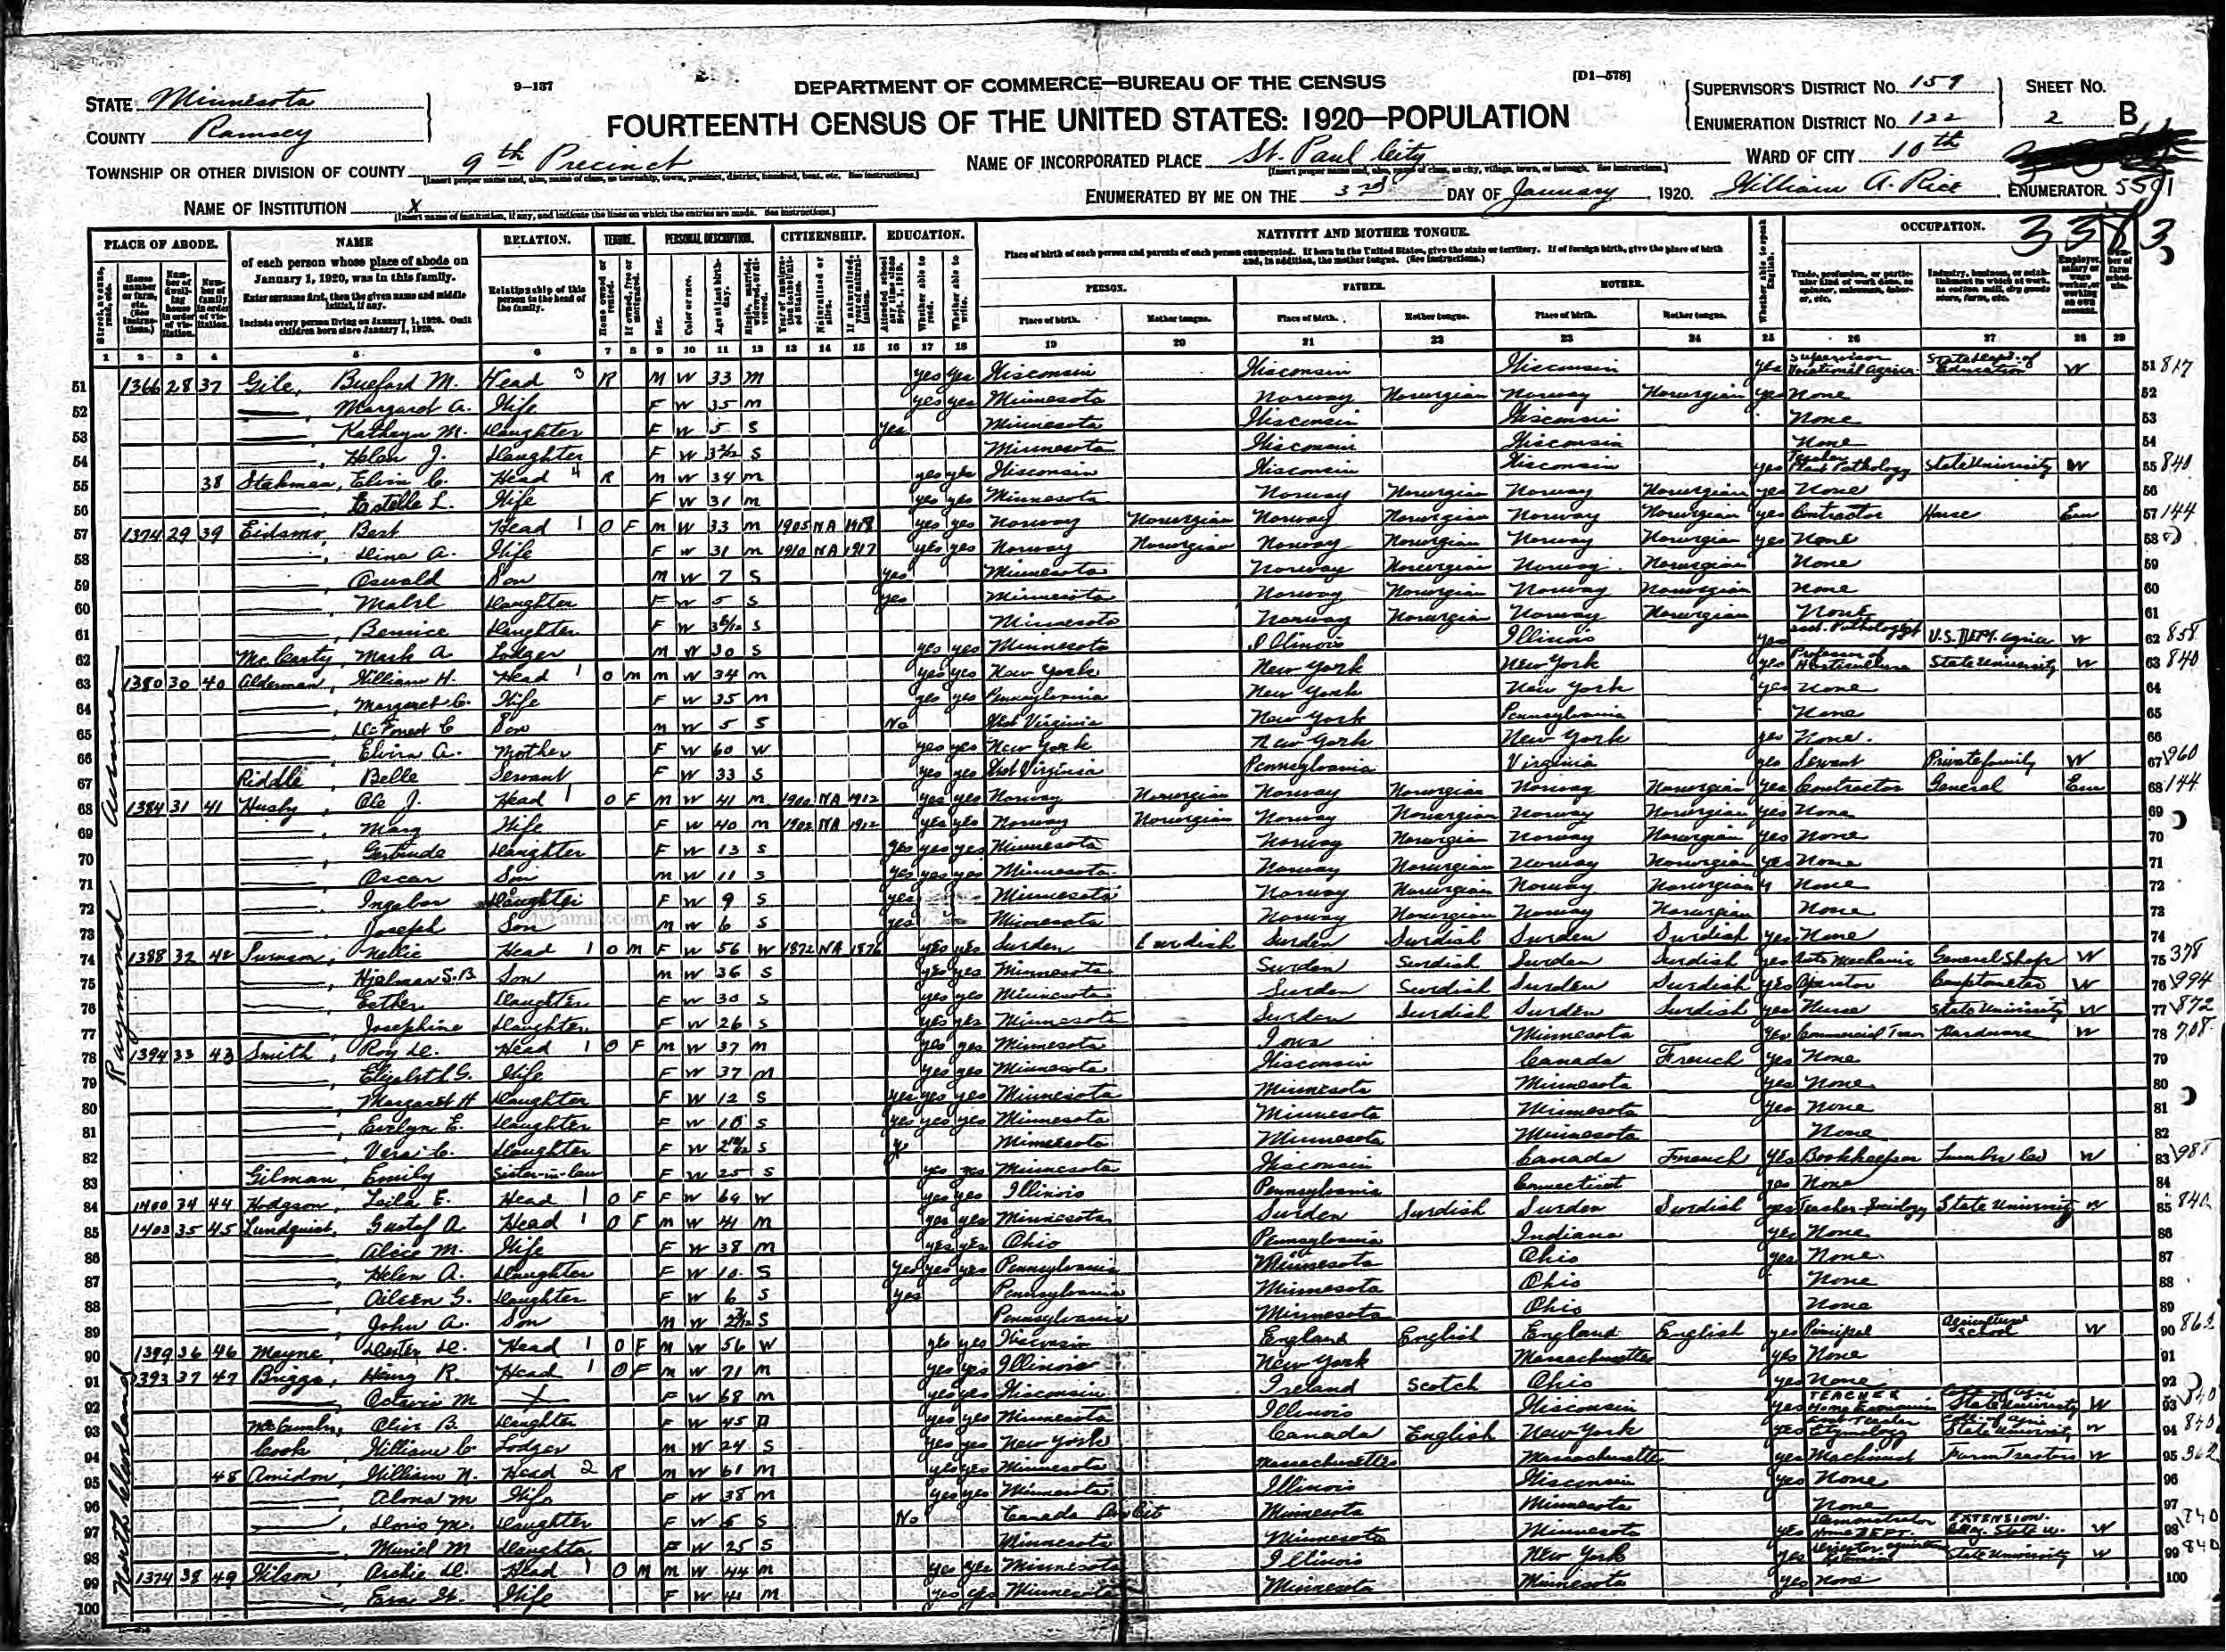 9-137
DEPARTMENT OF COMMERCE—BUREAU OF THE CENSUS
[D1-578]
FOURTEENTH CENSUS OF THE UNITED STATES: 1920—POPULATION
STATE Minnesota
COUNTY Ramsey
SUPERVISOR'S DISTRICT NO. 159
ENUMERATION DISTRICT NO. 122
SHEET NO. 2 B
TOWNSHIP OR OTHER DIVISION OF COUNTY 9th Precinct
NAME OF INCORPORATED PLACE St. Paul City
WARD OF CITY 10th
NAME OF INSTITUTION X
ENUMERATED BY ME ON THE 3rd DAY OF January, 1920. William A. Rice ENUMERATOR.
3383
PLACE OF ABODE. NAME RELATION. TENURE. PERSONAL DESCRIPTION. CITIZENSHIP. EDUCATION. NATIVITY AND MOTHER TONGUE. OCCUPATION.
of each person whose place of abode on January 1, 1920, was in this family.
Enter surname first, then the given name and middle initial, if any.
Include every person living on January 1, 1920. Omit children born since January 1, 1920.
Relationship of this person to the head of the family.
Place of birth of each person and parents of each person enumerated. If born in the United States, give the state or territory. If of foreign birth, give the place of birth and, in addition, the mother tongue. (See instructions.)
PERSON. FATHER. MOTHER.
Place of birth. Mother tongue. Place of birth. Mother tongue. Place of birth. Mother tongue.
1 2 3 4 5 6 7 8 9 10 11 12 13 14 15 16 17 18 19 20 21 22 23 24 25 26 27 28 29
Raymond Avenue
51 1366 28 37 Gile, Bueford M. Head R M W 33 M yes yes Wisconsin Wisconsin Wisconsin yes Supervisor Vocational Agricr State Dept. of Education W 51 817
52 Margaret A. Wife F W 35 M yes yes Minnesota Norway Norwegian Norway Norwegian yes None 52
53 Kathryn M. Daughter F W 5 S yes Minnesota Wisconsin Wisconsin None 53
54 Helen J. Daughter F W S Minnesota Wisconsin Wisconsin None 54
55 38 Stakman, Elvin C. Head R M W 34 M yes yes Wisconsin Wisconsin Wisconsin yes Teacher Plant Pathology State University W 55 840
56 Estelle L. Wife F W 31 M yes yes Minnesota Norway Norwegian Norway Norwegian yes None 56
57 1374 29 39 Eidsmo, Bert Head 1 O F M W 33 M 1905 NA yes yes Norway Norwegian Norway Norwegian Norway Norwegian yes Contractor House Em 57 144
58 Dina A. Wife F W 31 M 1910 NA 1917 yes yes Norway Norwegian Norway Norwegian Norway Norwegian yes None 58
59 Oswald Son M W 7 S yes Minnesota Norway Norwegian Norway Norwegian None 59
60 Mabel Daughter F W 5 S yes Minnesota Norway Norwegian Norway Norwegian None 60
61 Bernice Daughter F W S Minnesota Norway Norwegian Norway Norwegian None 61
62 McCarty, Mark A Lodger M W 30 S yes yes Minnesota Illinois Illinois yes Pathologist U.S. Dept. Agric W 62 858
63 1380 30 40 Alderman, William H. Head 1 O M M W 34 M yes yes New York New York New York yes Professor of Horticulture State University W 63 840
64 Margaret C. Wife F W 35 M yes yes Pennsylvania New York New York yes None 64
65 DeForest C Son M W 5 S No West Virginia New York Pennsylvania None 65
66 Elvira A. Mother F W 60 W yes yes New York New York New York yes None. 66
67 Riddle, Belle Servant F W 33 S yes yes West Virginia Pennsylvania Virginia yes Servant Private family W 67 960
68 1384 31 41 Husby, Ole J. Head 1 O F M W 41 M 1900 NA 1912 yes yes Norway Norwegian Norway Norwegian Norway Norwegian yes Contractor General Em 68 144
69 Mary Wife F W 40 M 1902 NA 1912 yes yes Norway Norwegian Norway Norwegian Norway Norwegian yes None 69
70 Gertrude Daughter F W 13 S yes yes yes Minnesota Norway Norwegian Norway Norwegian yes None 70
71 Oscar Son M W 11 S yes yes yes Minnesota Norway Norwegian Norway Norwegian yes None 71
72 Ingebor Daughter F W 9 S yes Minnesota Norway Norwegian Norway Norwegian None 72
73 Joseph Son M W 6 S yes Minnesota Norway Norwegian Norway Norwegian None 73
74 1388 32 42 Swenson, Nellie Head 1 O M F W 56 W 1872 NA 1876 yes yes Sweden Swedish Sweden Swedish Sweden Swedish yes None 74
75 Hjelmar S.B. Son M W 36 S yes yes Minnesota Sweden Swedish Sweden Swedish yes Auto Mechanic General Shop W 75 378
76 Esther Daughter F W 30 S yes yes Minnesota Sweden Swedish Sweden Swedish yes Operator Comptometer W 76 994
77 Josephine Daughter F W 26 S yes yes Minnesota Sweden Swedish Sweden Swedish yes Nurse State University W 77 872
78 1394 33 43 Smith, Roy D. Head 1 O F M W 37 M yes yes Minnesota Iowa Minnesota yes Commercial Trav Hardware W 78 708
79 Elizabeth G. Wife F W 37 M yes yes Minnesota Wisconsin Canada French yes None 79
80 Margaret H Daughter F W 12 S yes yes yes Minnesota Minnesota Minnesota yes None 80
81 Evelyn E. Daughter F W 10 S yes yes yes Minnesota Minnesota Minnesota yes None 81
82 Daughter F W S Minnesota Minnesota Minnesota None 82
83 Gilman, Emily Sister-in-law F W 25 S yes yes Minnesota Wisconsin Canada French yes Bookkeeper Lumber Co W 83
84 1400 34 44 Hodgson, Leila E. Head 1 O F F W 69 W yes yes Illinois Pennsylvania Connecticut yes None 84
85 1403 35 45 Lundquist, Gustaf A. Head 1 O F M W 41 M yes yes Minnesota Sweden Swedish Sweden Swedish yes Teacher-Sociology State University W 85 840
86 Alice M. Wife F W 38 M yes yes Ohio Pennsylvania Indiana yes None 86
87 Helen A. Daughter F W 10 S yes yes yes Pennsylvania Minnesota Ohio yes None 87
88 Aileen G. Daughter F W 6 S yes Pennsylvania Minnesota Ohio None 88
89 John A. Son M W S Pennsylvania Minnesota Ohio None 89
North Cleveland
90 1399 36 46 Mayne, Dexter D. Head 1 O F M W 56 W yes yes Wisconsin England English England English yes Principal Agricultural School W 90
91 1393 37 47 Briggs, Head 1 O F M W 71 M yes yes Illinois New York Massachusetts yes None 91
92 Octavia M X F W 68 M yes yes Wisconsin Ireland Scotch Ohio yes None 92
93 Olive B. Daughter F W 45 D yes yes Minnesota Illinois Wisconsin yes TEACHER Home Economics State University W 93 840
94 Cook, William C. Lodger M W 24 S yes yes New York Canada English New York yes Teacher State University W 94 840
95 48 Amidon, William N. Head 2 R M W 61 M yes yes Minnesota Massachusetts Massachusetts yes Machinist Farm Tractors W 95 362
96 Wife F W 38 M yes yes Minnesota Illinois Wisconsin yes None 96
97 Doris M. Daughter F W 5 S No Canada Minnesota Minnesota None 97
98 Muriel M Daughter F W 25 S Minnesota Minnesota Minnesota yes Demonstrator Home DEPT. EXTENSION. W 98 840
99 1374 38 49 Wilson, Archie D. Head 1 O M M W 44 M yes yes Minnesota Illinois New York yes Director Extension State University W 99 840
100 Wife F W 41 M yes yes Minnesota Minnesota Minnesota yes None 100